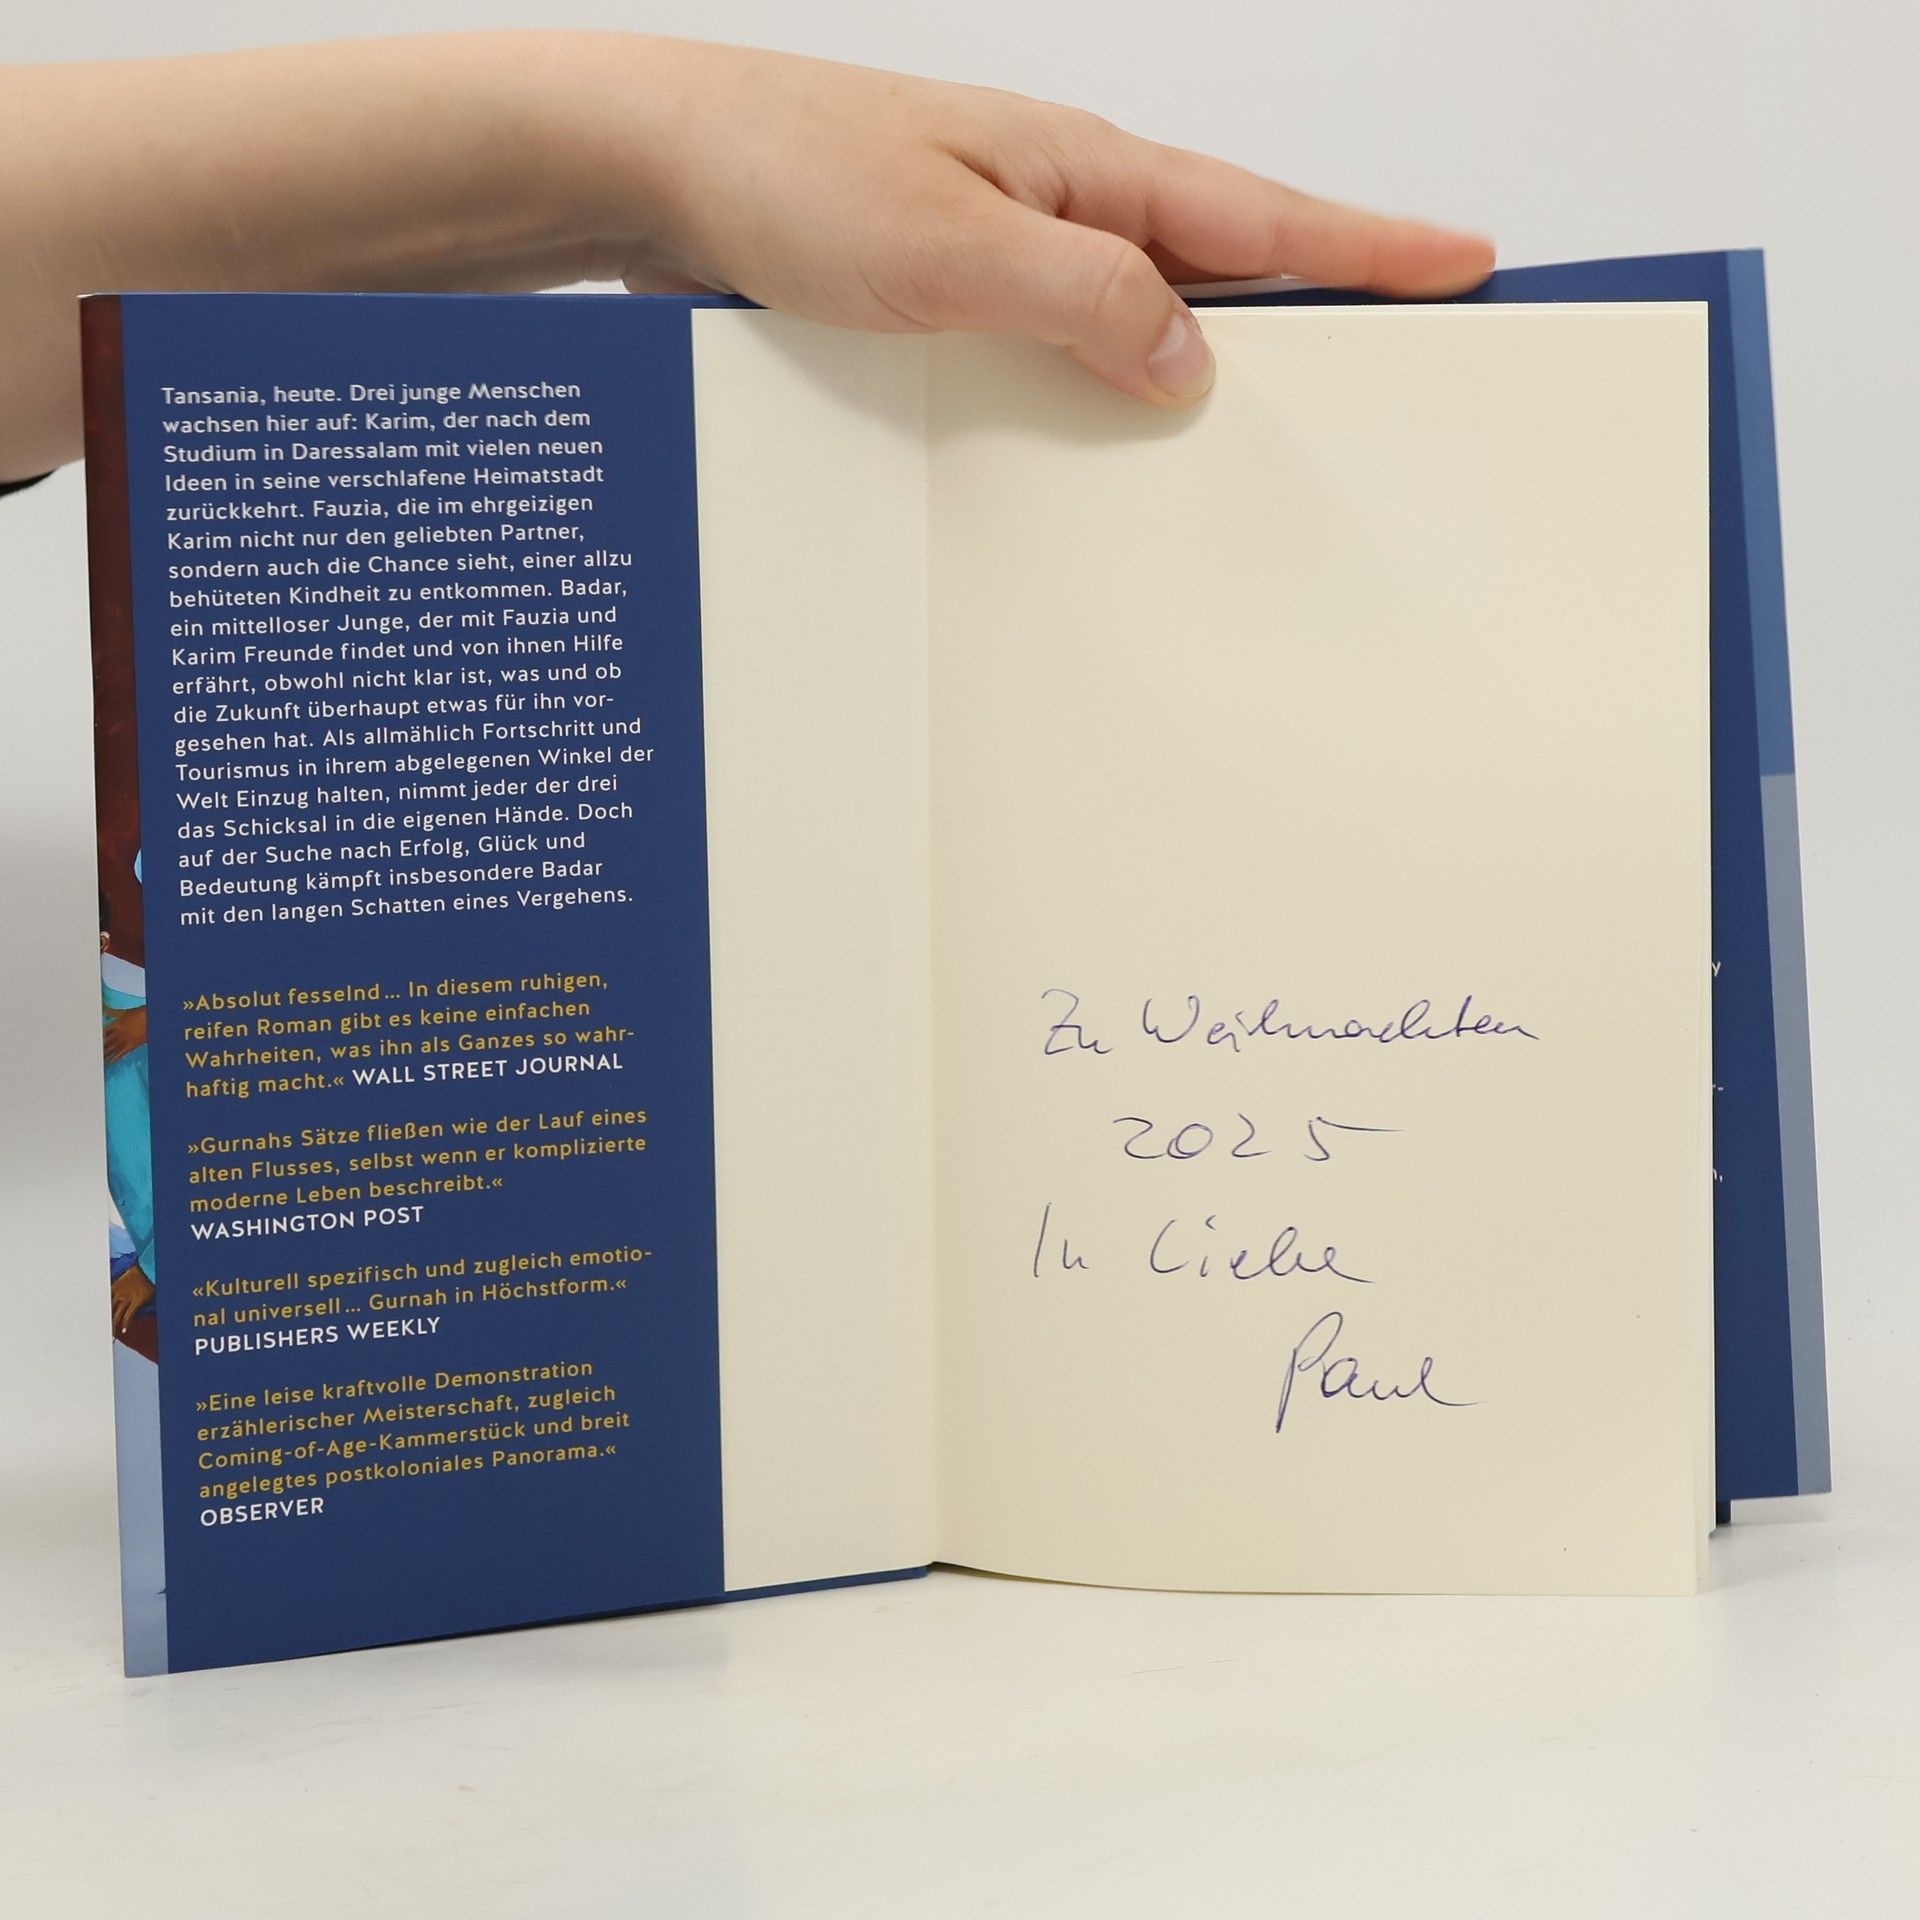 Tansania, heute. Drei junge Menschen
wachsen hier auf: Karim, der nach dem
Studium in Daressalam mit vielen neuen
Ideen in seine verschlafene Heimatstadt
zurückkehrt. Fauzia, die im ehrgeizigen
Karim nicht nur den geliebten Partner,
sondern auch die Chance sieht, einer allzu
behüteten Kindheit zu entkommen. Badar,
ein mittelloser Junge, der mit Fauzia und
Karim Freunde findet und von ihnen Hilfe
erfährt, obwohl nicht klar ist, was und ob
die Zukunft überhaupt etwas für ihn vor-
gesehen hat. Als allmählich Fortschritt und
Tourismus in ihrem abgelegenen Winkel der
Welt Einzug halten, nimmt jeder der drei
das Schicksal in die eigenen Hände. Doch
auf der Suche nach Erfolg, Glück und
Bedeutung kämpft insbesondere Badar
mit den langen Schatten eines Vergehens.
»Absolut fesselnd ... In diesem ruhigen,
reifen Roman gibt es keine einfachen
Wahrheiten, was ihn als Ganzes so wahr-
haftig macht.« WALL STREET JOURNAL
»Gurnahs Sätze fließen wie der Lauf eines
alten Flusses, selbst wenn er komplizierte
moderne Leben beschreibt.«
WASHINGTON POST
«Kulturell spezifisch und zugleich emotio-
nal universell ... Gurnah in Höchstform.«
PUBLISHERS WEEKLY
»Eine leise kraftvolle Demonstration
erzählerischer Meisterschaft, zugleich
Coming-of-Age-Kammerstück und breit
angelegtes postkoloniales Panorama.«
OBSERVER
Zu Weihnachten
2025
In Liebe
Paul